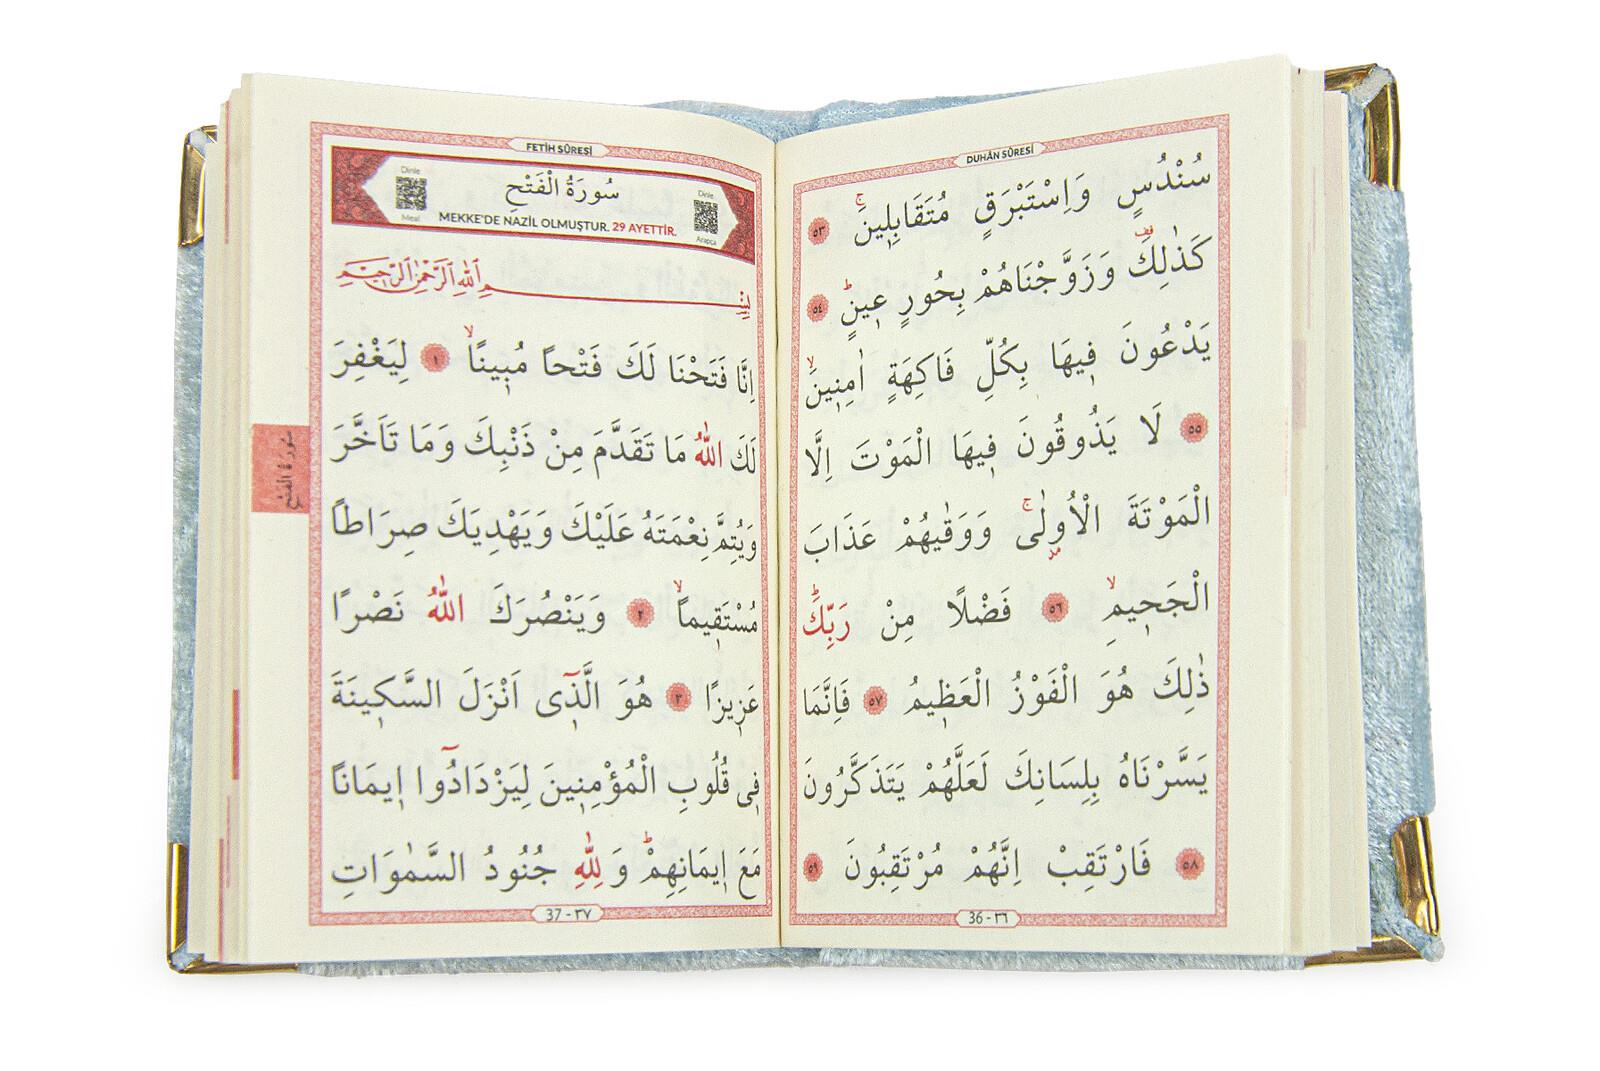 DUHÂN SÛRESİ
سُنْدُسٍ وَاِسْتَبْرَقٍ مُتَقَابِلٖينَۚ ﴿٥٣﴾
كَذٰلِكَ وَزَوَّجْنَاهُمْ بِحُورٍ عٖينٍؕ ﴿٥٤﴾
يَدْعُونَ فٖيهَا بِكُلِّ فَاكِهَةٍ اٰمِنٖينَۙ
﴿٥٥﴾ لَا يَذُوقُونَ فٖيهَا الْمَوْتَ اِلَّا
الْمَوْتَةَ الْاُولٰىۚ وَوَقٰيهُمْ عَذَابَ
الْجَحٖيمِۙ ﴿٥٦﴾ فَضْلًا مِنْ رَبِّكَؕ
ذٰلِكَ هُوَ الْفَوْزُ الْعَظٖيمُ ﴿٥٧﴾ فَاِنَّمَا
يَسَّرْنَاهُ بِلِسَانِكَ لَعَلَّهُمْ يَتَذَكَّرُونَ
﴿٥٨﴾ فَارْتَقِبْ اِنَّهُمْ مُرْتَقِبُونَ ﴿٥٩﴾
36 - ٣٦
FETİH SÛRESİ
Dinle
Meal
سُورَةُ الْفَتْحِ
Dinle
Arapça
MEKKE'DE NAZİL OLMUŞTUR. 29 AYETTİR.
بِسْمِ اللّٰهِ الرَّحْمٰنِ الرَّحٖيمِ
اِنَّا فَتَحْنَا لَكَ فَتْحًا مُبٖينًاۙ ﴿١﴾ لِيَغْفِرَ
لَكَ اللّٰهُ مَا تَقَدَّمَ مِنْ ذَنْبِكَ وَمَا تَاَخَّرَ
وَيُتِمَّ نِعْمَتَهُ عَلَيْكَ وَيَهْدِيَكَ صِرَاطًا
مُسْتَقٖيمًاۙ ﴿٢﴾ وَيَنْصُرَكَ اللّٰهُ نَصْرًا
عَزٖيزًا ﴿٣﴾ هُوَ الَّذٖٓى اَنْزَلَ السَّكٖينَةَ
فٖى قُلُوبِ الْمُؤْمِنٖينَ لِيَزْدَادُٓوا اٖيمَانًا
مَعَ اٖيمَانِهِمْؕ وَلِلّٰهِ جُنُودُ السَّمٰوَاتِ
37 - ٣٧
سورة الفتح